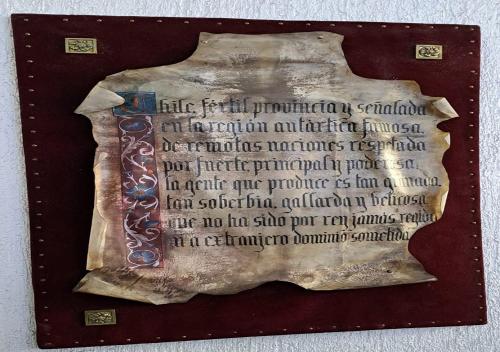 Chile, fértil provincia y señalada
en la región antártica famosa,
de remotas naciones respetada
por fuerte, principal y poderosa.
la gente que produce es tan granada,
tan soberbia, gallarda y belicosa
que no ha sido por rey jamás regida
ni a extranjero dominio sometida